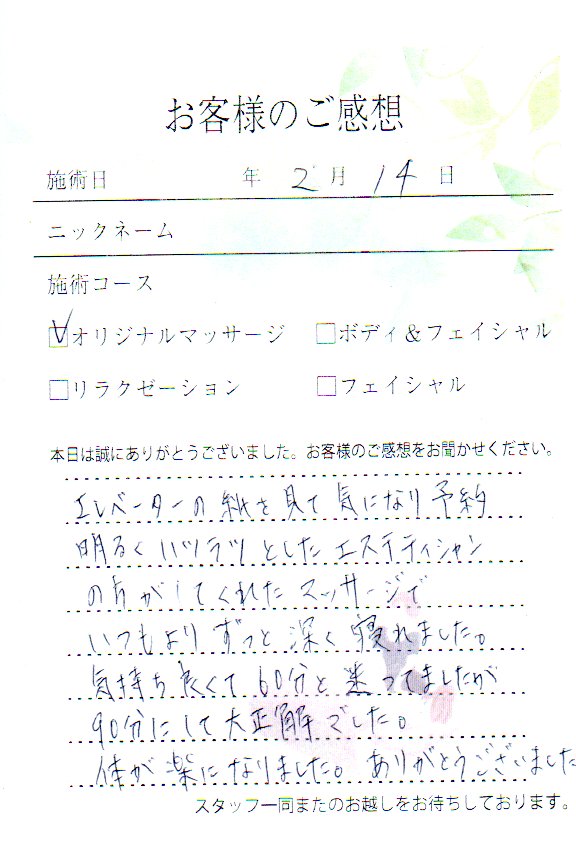 お客様のご感想
施術日 年 2月 14日
ニックネーム
施術コース
オリジナルマッサージ ボディ&フェイシャル
リラクゼーション フェイシャル
本日は誠にありがとうございました。お客様のご感想をお聞かせください。
エレベーターの紙を見て気になり予約
明るくハツラツとしたエステティシャン
の方がしてくれたマッサージで
いつもよりずっと深く寝れました。
気持ち良くて60分と迷ってましたが
90分にして大正解でした。
体が楽になりました。ありがとうございました
スタッフ一同またのお越しをお待ちしております。